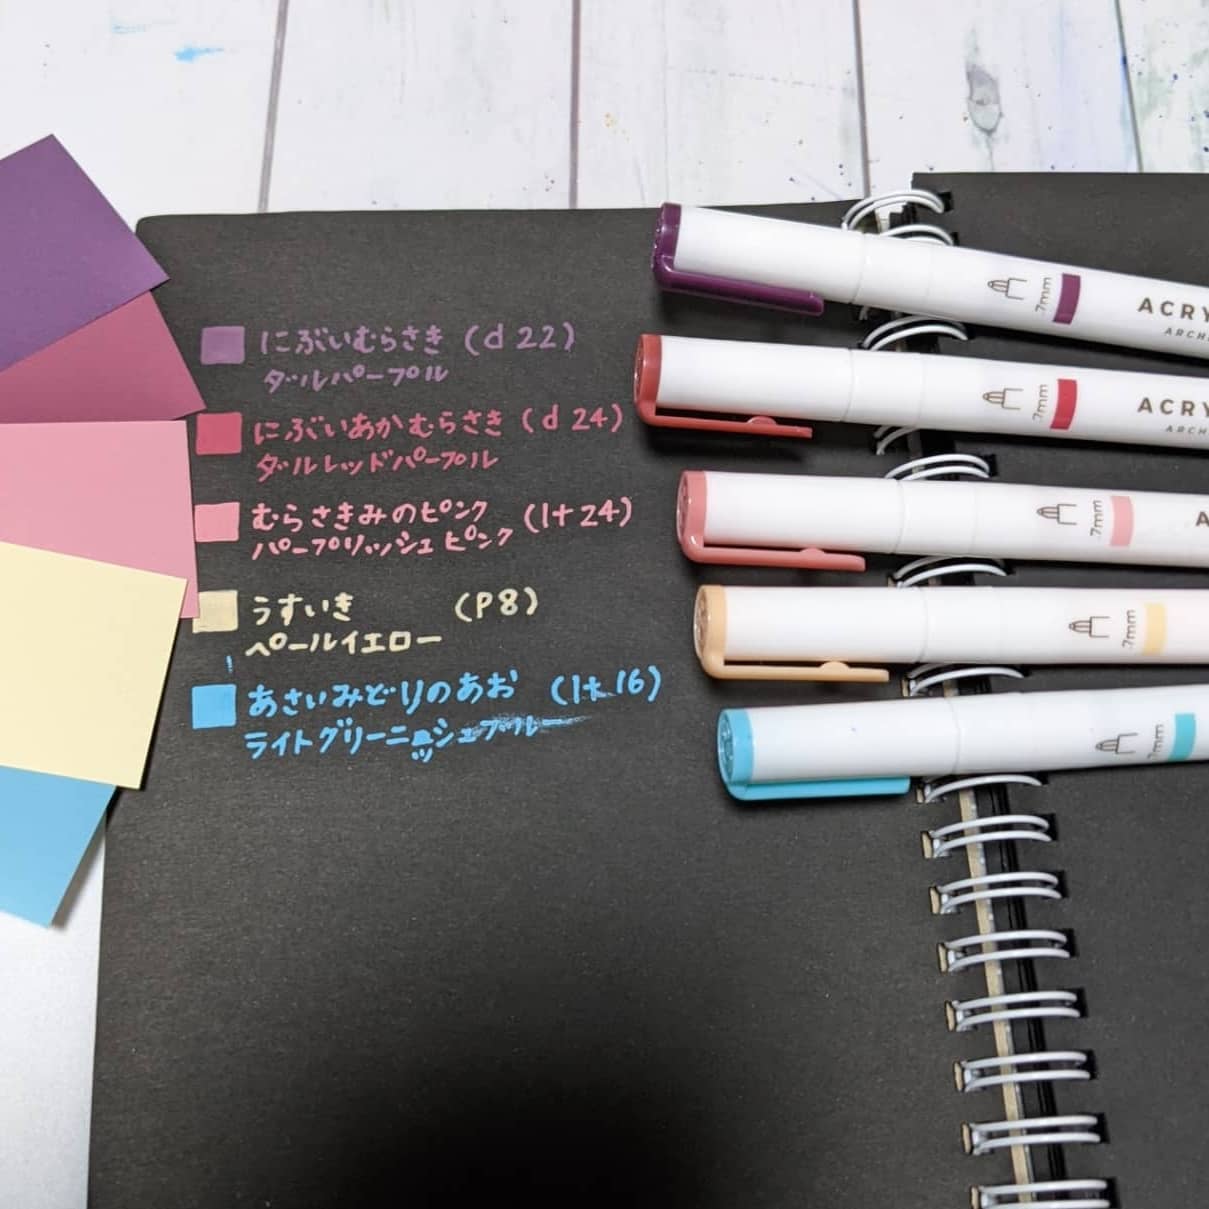 にぶいむらさき (d 22)
ダルパープル
にぶいあかむらさき (d 24)
ダルレッドパープル
むらさきみのピンク (lt 24)
パープリッシュピンク
うすいき (P8)
ペールイエロー
あさいみどりのあお (lt 16)
ライトグリーニッシュブルー
.7mm
ACRY
ARCH
.7mm
ACRY
ARCH
.7mm
A
.7mm
.7mm